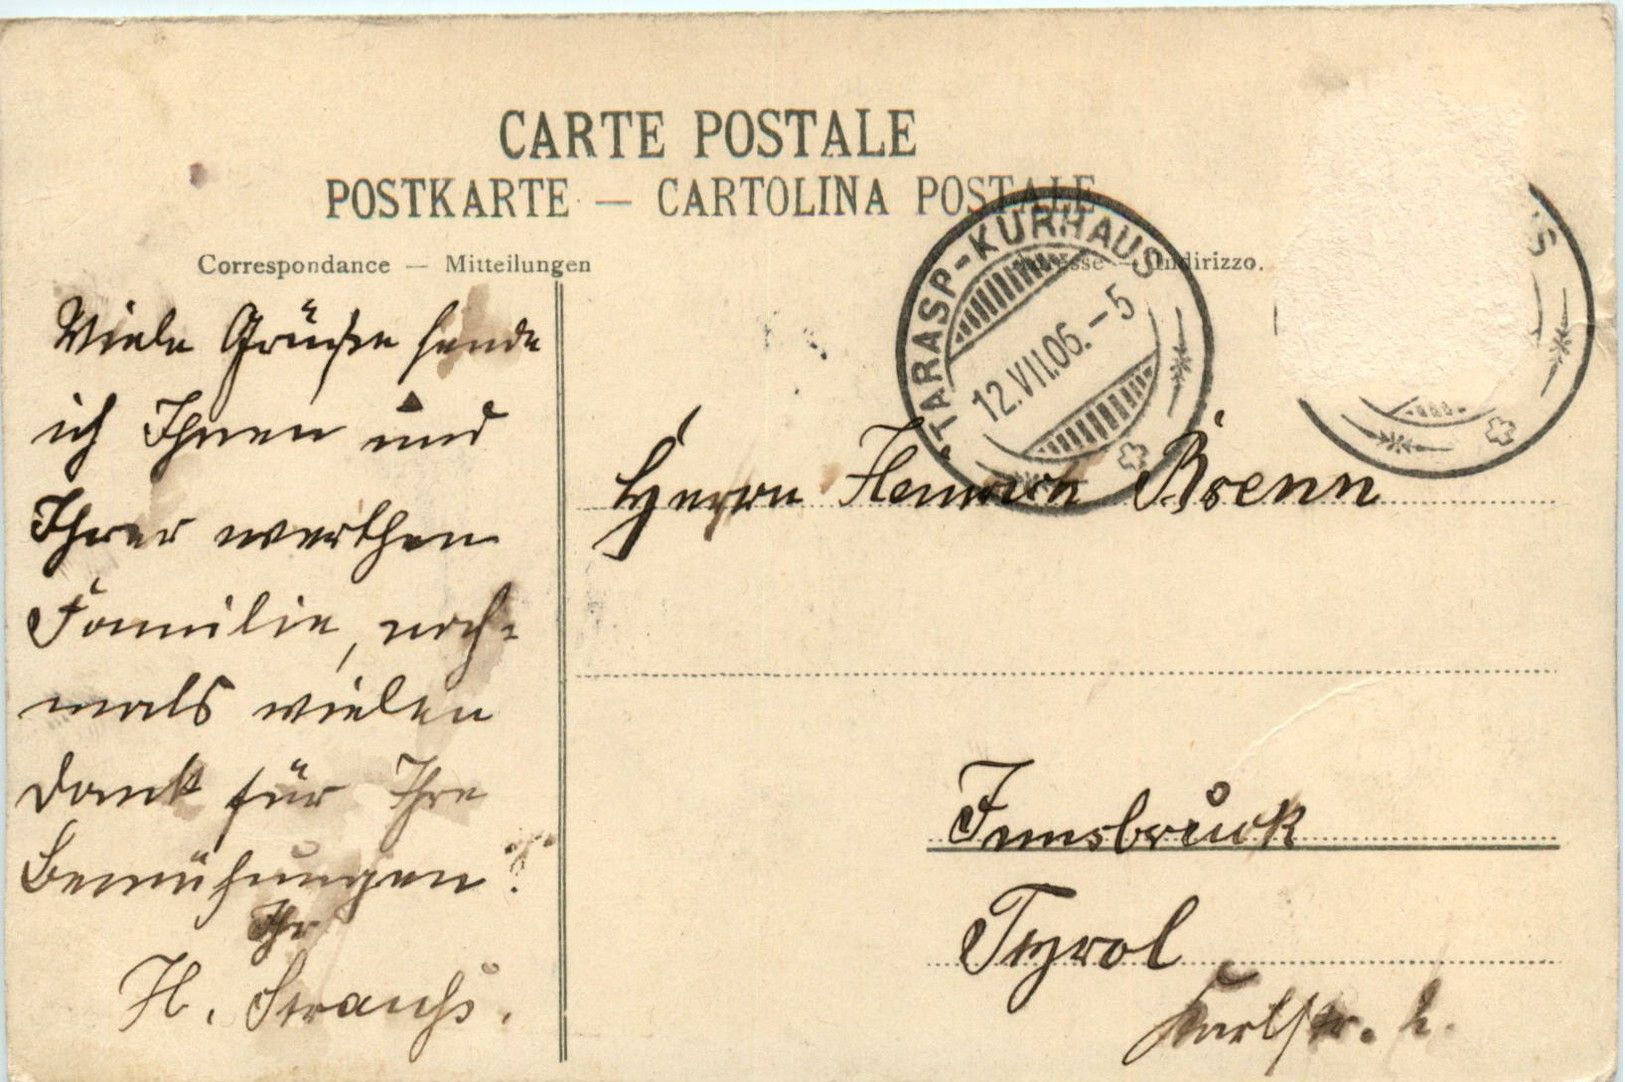 CARTE POSTALE
POSTKARTE — CARTOLINA POSTALE
Correspondance — Mitteilungen
Indirizzo.
TARASP-KURHAUS
12.VII.06.-5
S
Viele Grüße sende
ich Ihnen und
Ihrer werthen
Familie, noch-
mals vielen
Dank für Ihre
Bemühungen!
Ihr
H. Strauß.
Herrn Heinrich Brenn
Innsbruck
Tyrol
Karlstr.